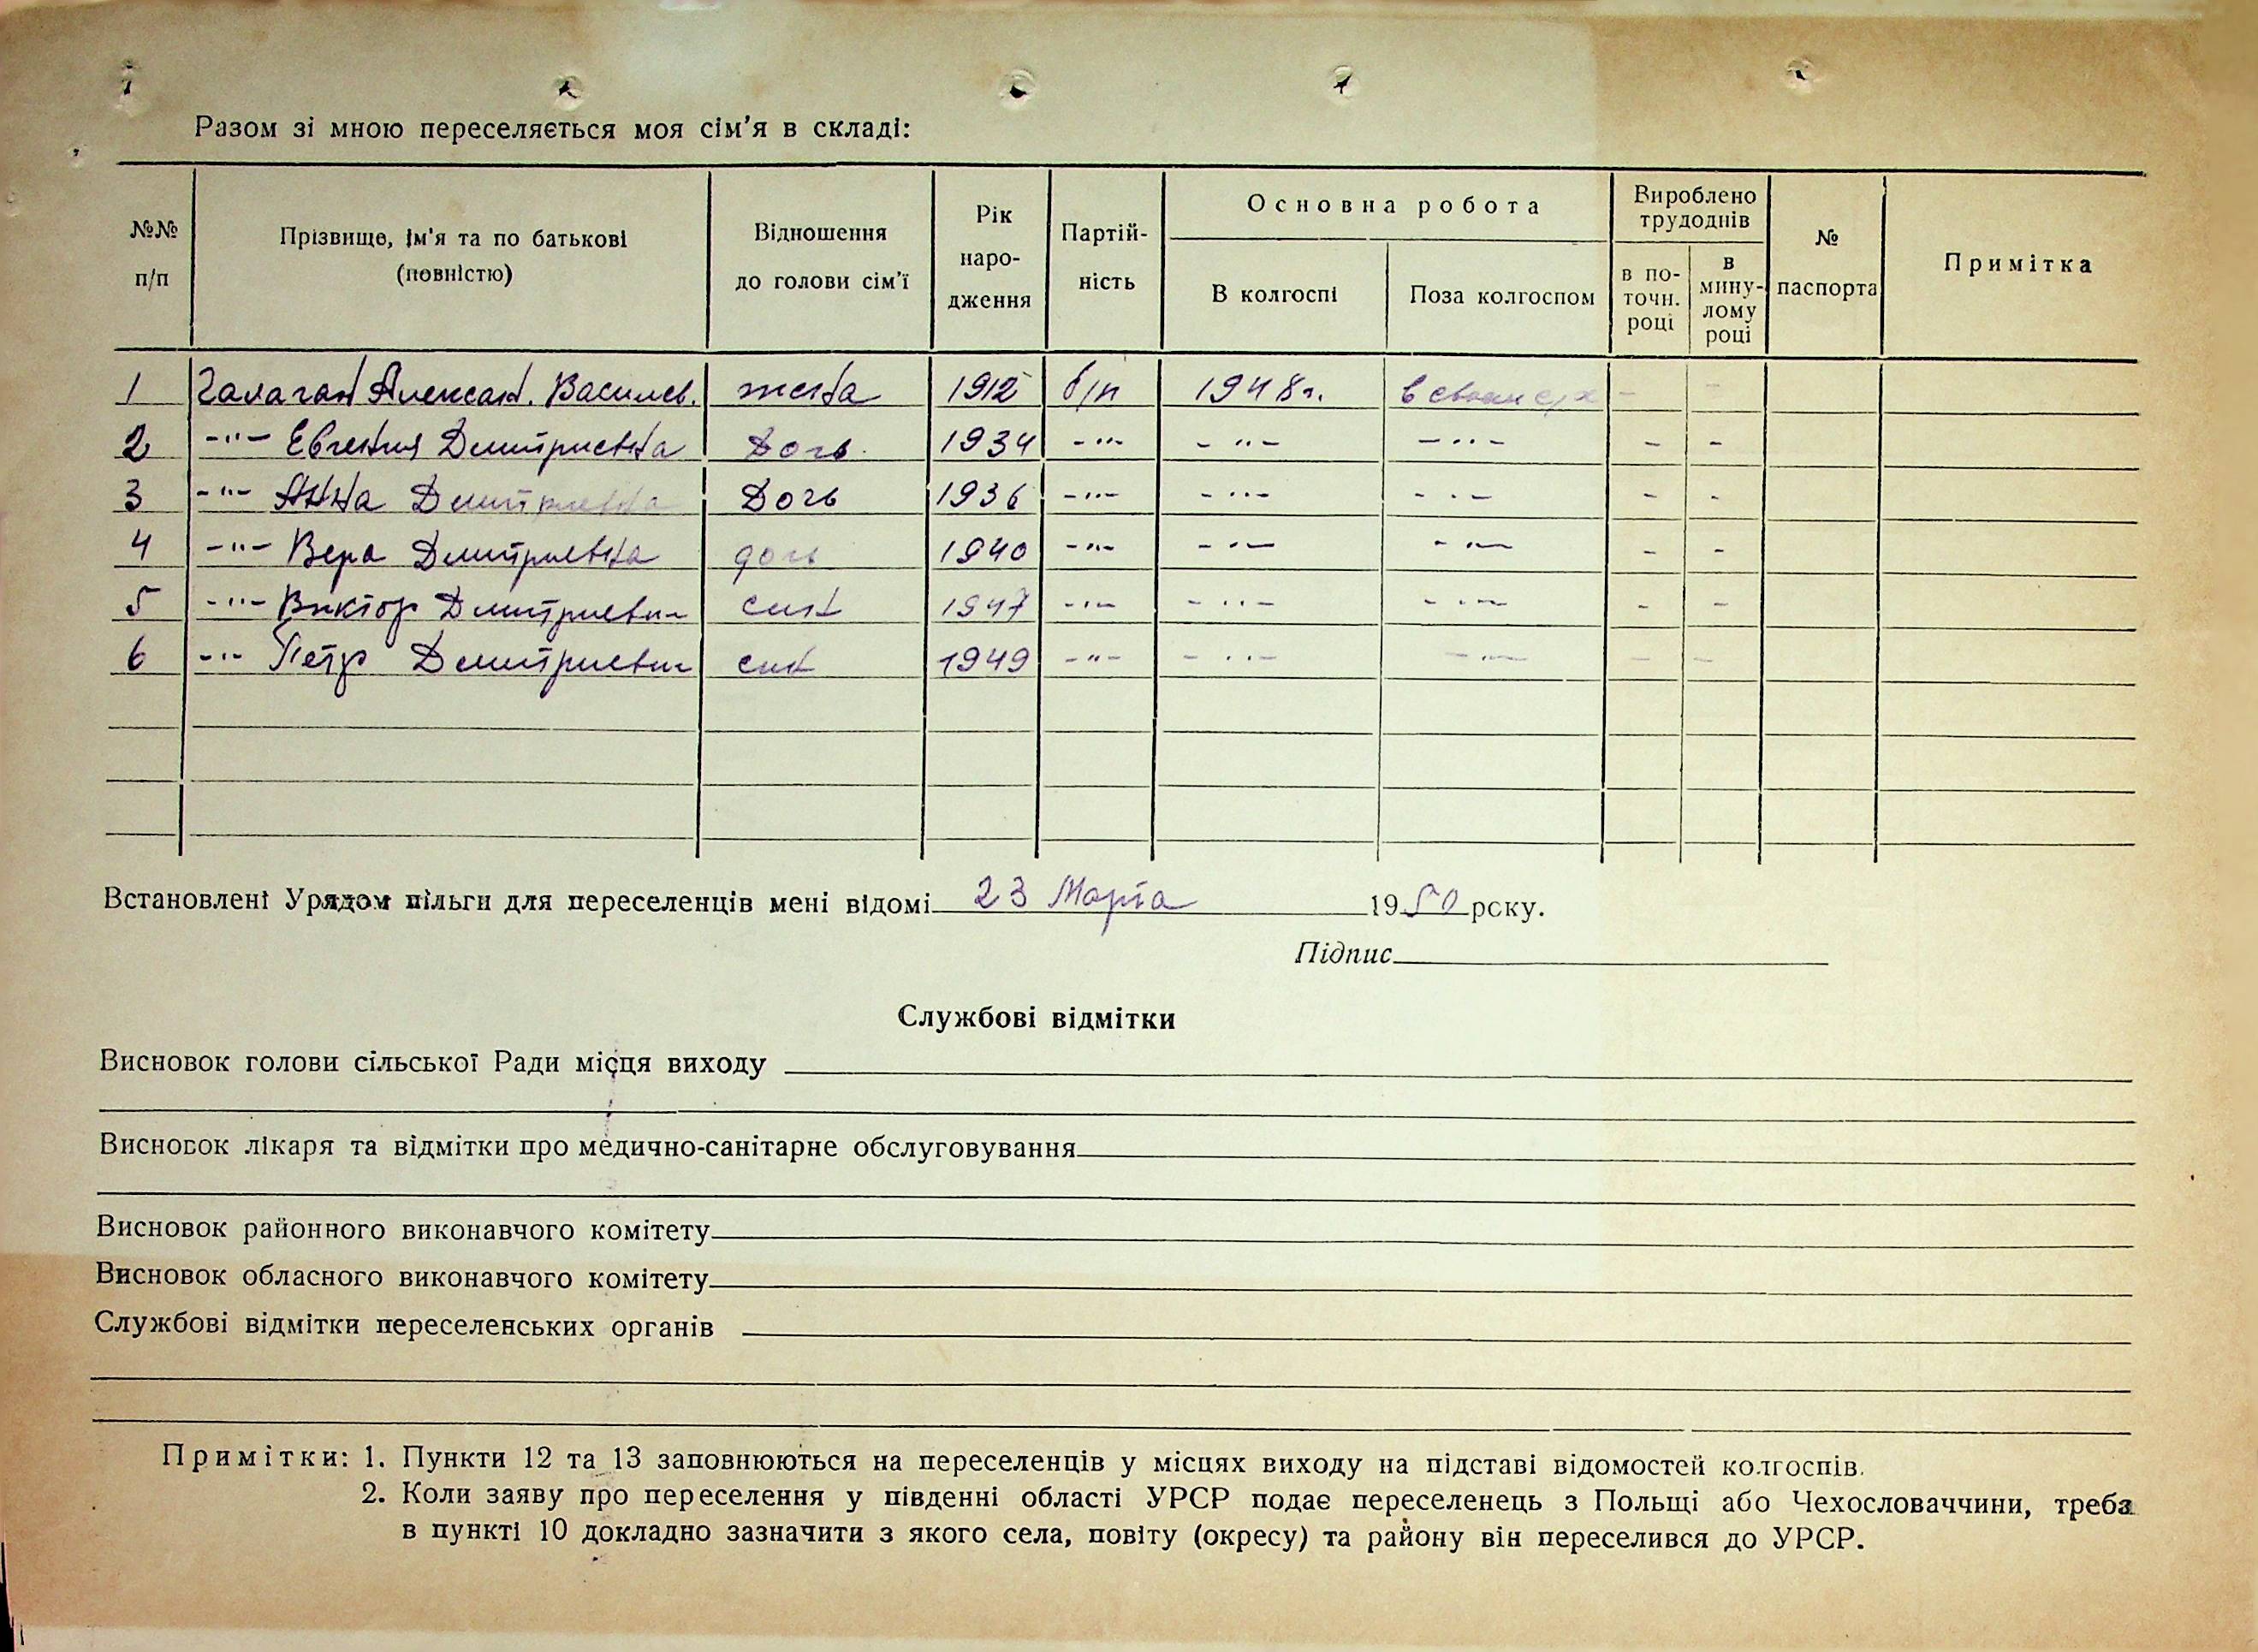 Разом зі мною переселяється моя сім'я в складі:
№№ п/п
Прізвище, ім'я та по батькові (повністю)
Відношення до голови сім'ї
Рік народження
Партійність
Основна робота
В колгоспі
Поза колгоспом
Вироблено трудоднів
в поточн. році
в минулому році
№ паспорта
Примітка
1 Галаган Александ. Василев. жена 1912 б/п 1948 г. в своем с/х - -
2 -"- Евгения Дмитриевна Дочь 1934 -"- -"- -"- - -
3 -"- Анна Дмитриевна Дочь 1936 -"- -"- -"- - -
4 -"- Вера Дмитриевна дочь 1940 -"- -"- -"- - -
5 -"- Виктор Дмитриевич сын 1947 -"- -"- -"- - -
6 -"- Петр Дмитриевич сын 1949 -"- -"- -"- - -
Встановлені Урядом пільги для переселенців мені відомі 23 Марта 1950 року.
Підпис
Службові відмітки
Висновок голови сільської Ради місця виходу
Висновок лікаря та відмітки про медично-санітарне обслуговування
Висновок районного виконавчого комітету
Висновок обласного виконавчого комітету
Службові відмітки переселенських органів
Примітки: 1. Пункти 12 та 13 заповнюються на переселенців у місцях виходу на підставі відомостей колгоспів.
2. Коли заяву про переселення у південні області УРСР подає переселенець з Польщі або Чехословаччини, треба
в пункті 10 докладно зазначити з якого села, повіту (окресу) та району він переселився до УРСР.